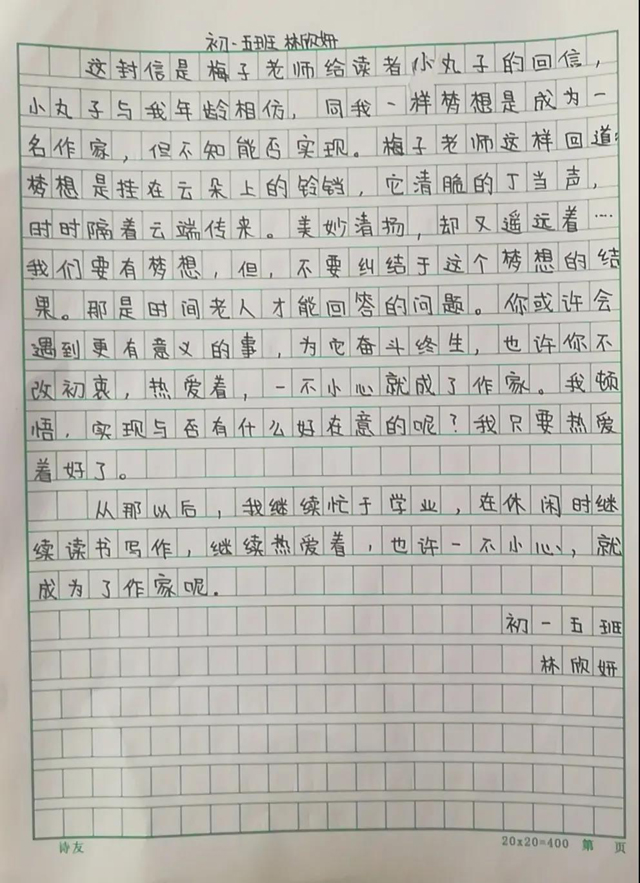 初一五班 林欣妍
这封信是梅子老师给读者小丸子的回信，
小丸子与我年龄相仿，同我一样梦想是成为一
名作家，但不知能否实现。梅子老师这样回道：
梦想是挂在云朵上的铃铛，它清脆的丁当声，
时时隔着云端传来。美妙清扬，却又遥远着……
我们要有梦想，但，不要纠结于这个梦想的结
果。那是时间老人才能回答的问题。你或许会
遇到更有意义的事，为它奋斗终生，也许你不
改初衷，热爱着，一不小心就成了作家。我顿
悟，实现与否有什么好在意的呢？我只要热爱
着好了。
从那以后，我继续忙于学业，在休闲时继
续读书写作，继续热爱着，也许一不小心，就
成为了作家呢。
初一五班
林欣妍
诗友 20x20=400 第 页